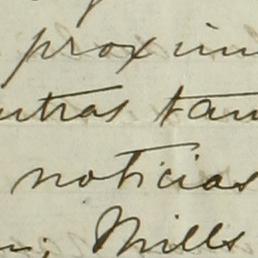 proxim
utras tam
noticias
Mills